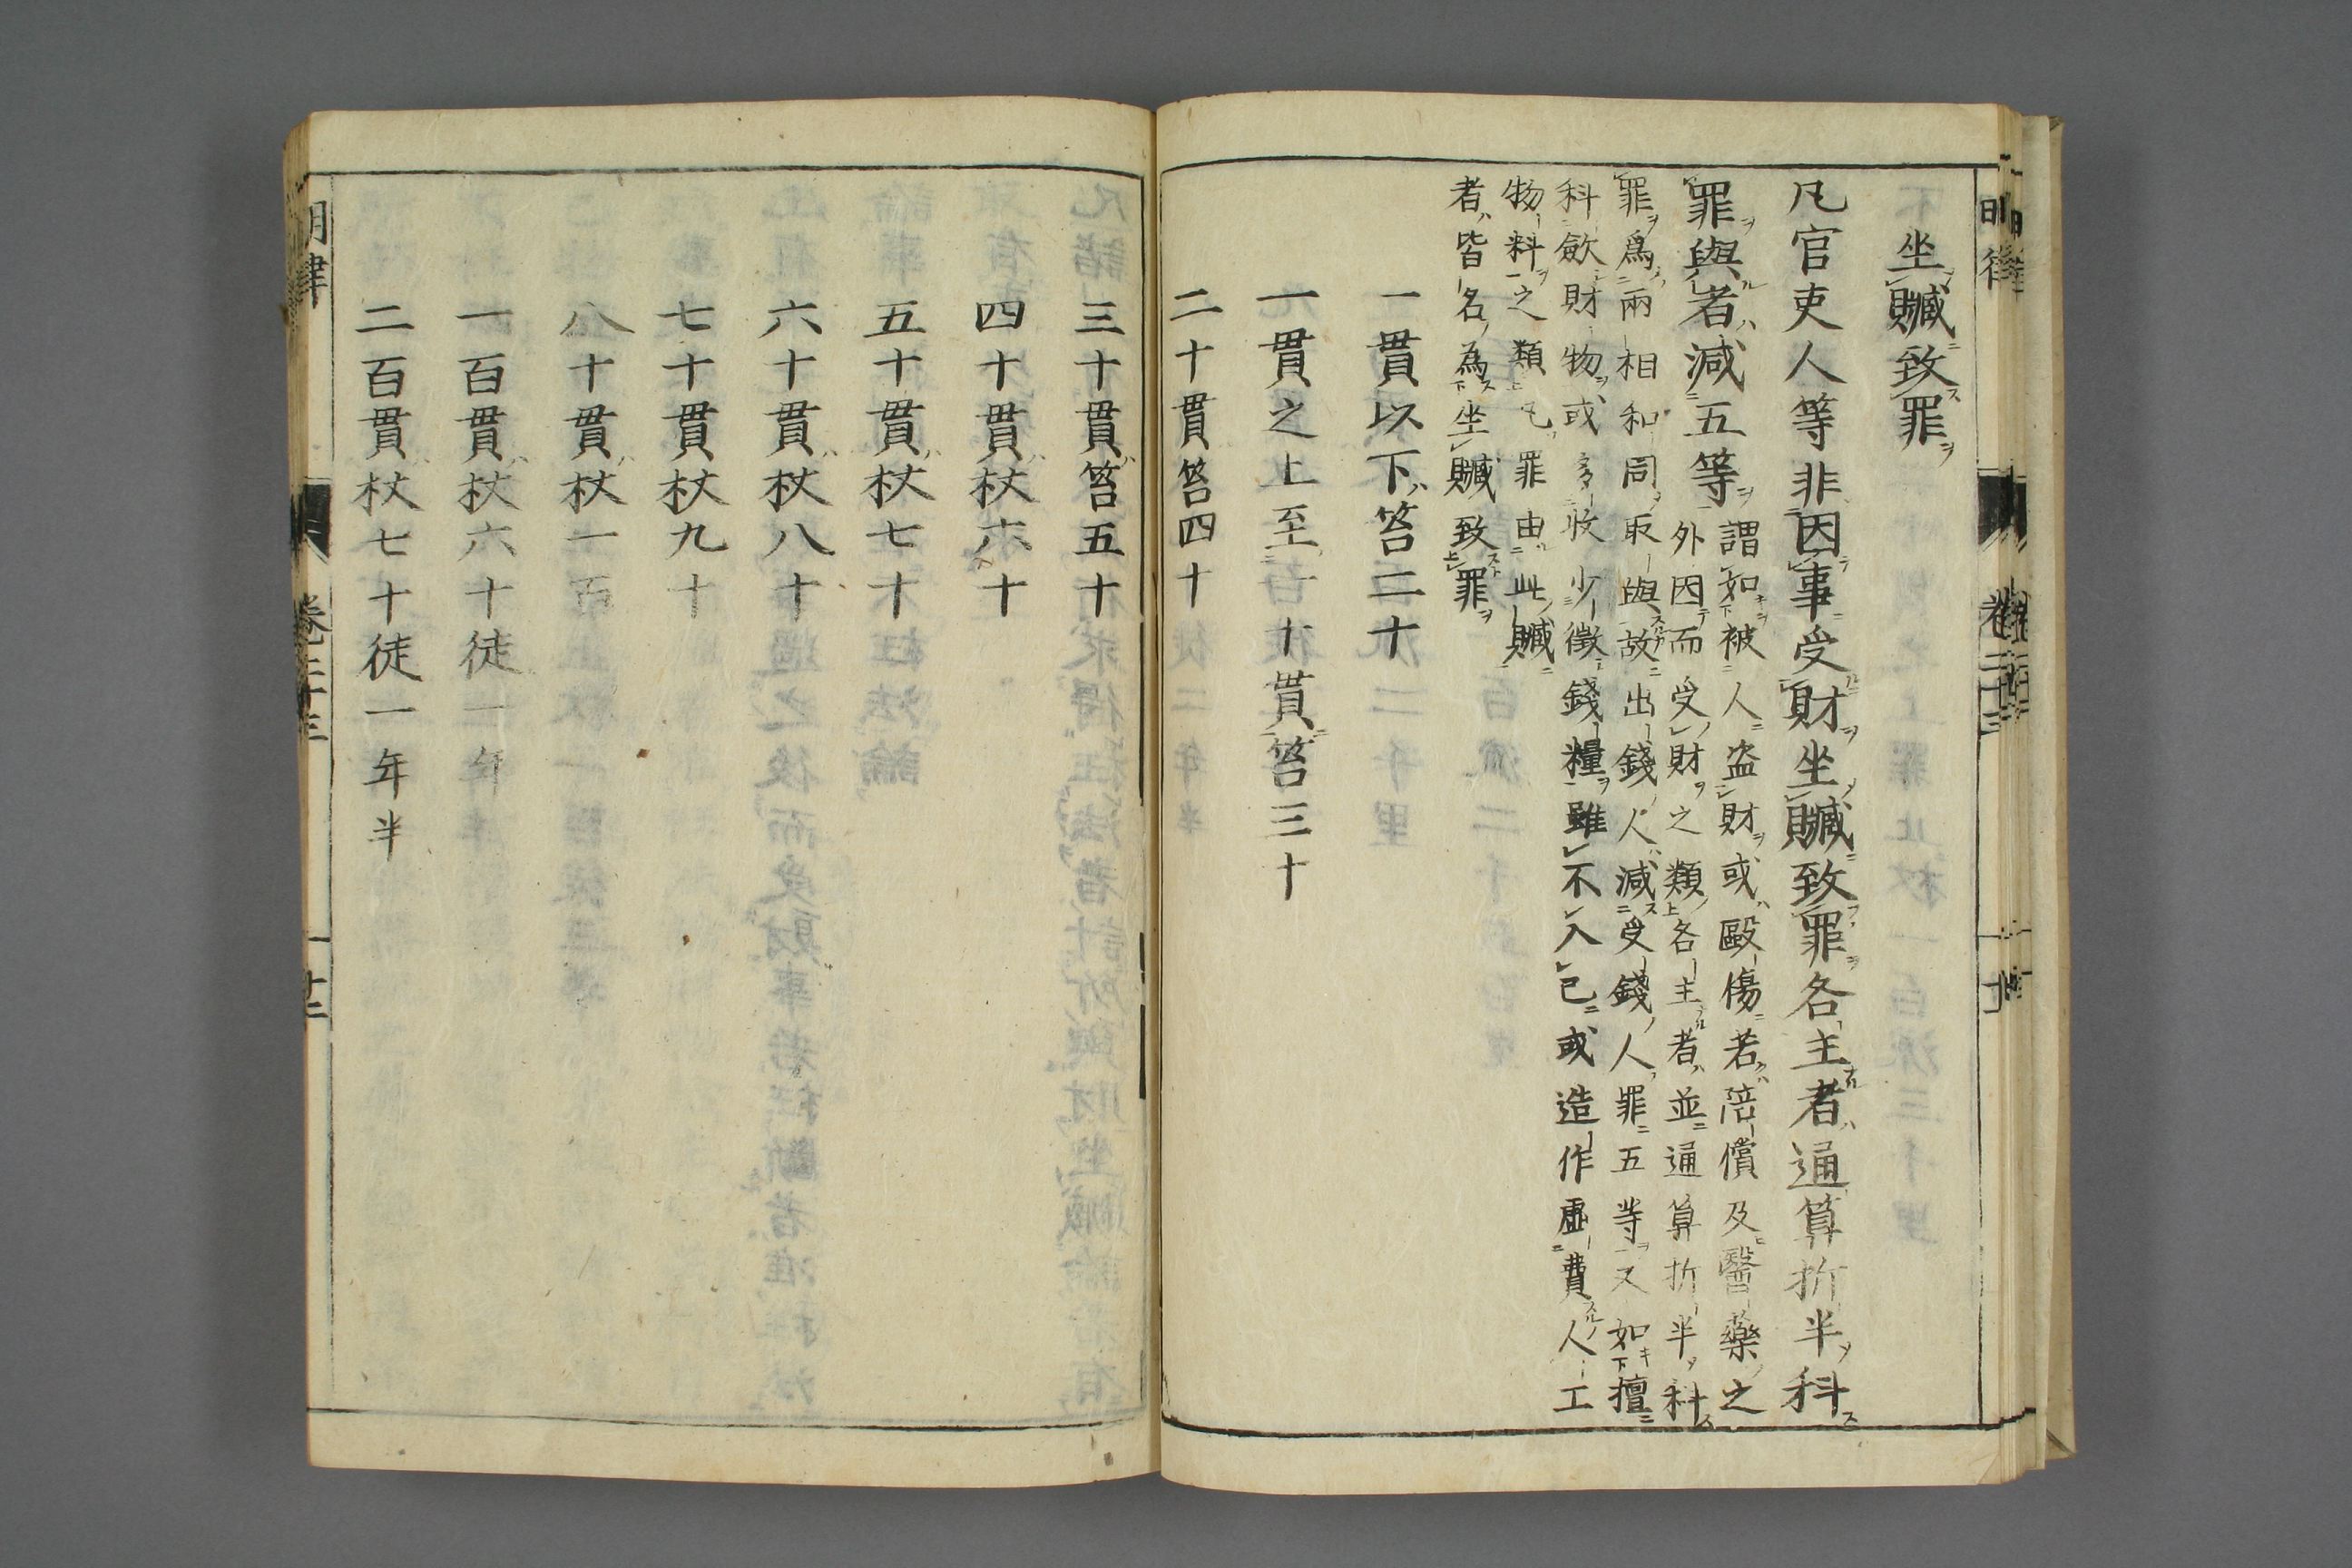 坐贓致罪
凡官吏人等非因事受財坐贓致罪各主者通算折半科
罪與者減五等
謂如被人盗財或毆傷若陪償及醫藥之
外因而受財之類各主者並通算折半科
罪爲兩相和同取與故出錢人減受錢人罪五等又如擅
科歛財物或多收少徵錢糧雖不入己或造作虛費人工
物料之類凢罪由此贓
者皆名為坐贓致罪
一貫以下笞二十
一貫之上至一十貫笞三十
二十貫笞四十
三十貫笞五十
四十貫杖六十
五十貫杖七十
六十貫杖八十
七十貫杖九十
八十貫杖一百
一百貫杖六十徒一年
二百貫杖七十徒一年半
明律
卷二十三
廿二